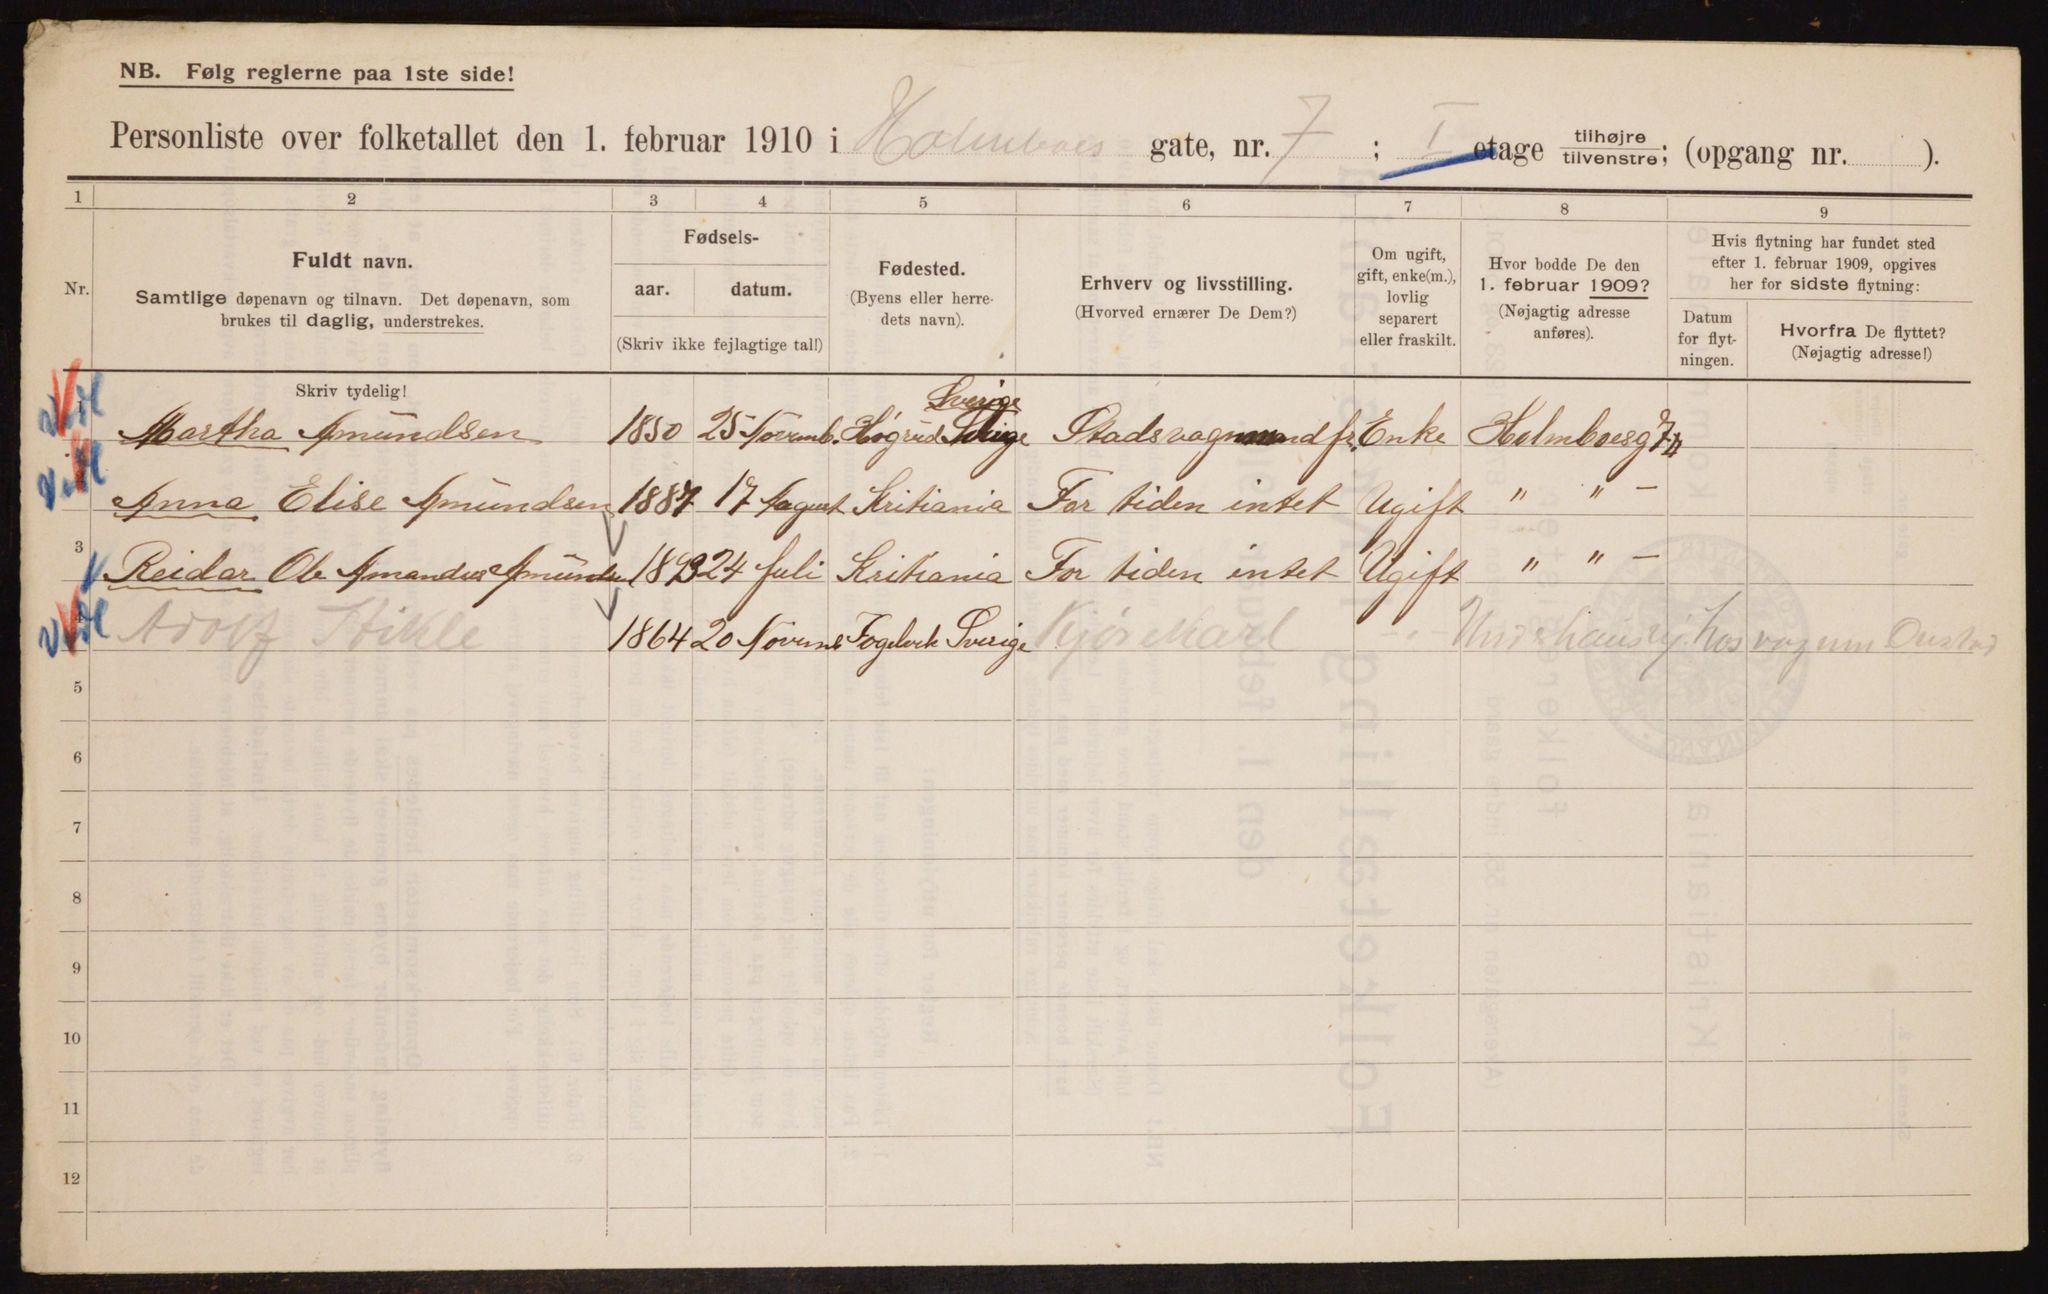 NB. Følg reglerne paa 1ste side!
Personliste over folketallet den 1. februar 1910 i Holmboes gate, nr. 7 ; I etage tilhøjre tilvenstre; (opgang nr. ).
1 2 3 4 5 6 7 8 9
Nr.
Fuldt navn.
Samtlige døpenavn og tilnavn. Det døpenavn, som
brukes til daglig, understrekes.
Skriv tydelig!
Fødsels-
aar. datum.
(Skriv ikke fejlagtige tal!)
Fødested.
(Byens eller herre-
dets navn).
Erhverv og livsstilling.
(Hvorved ernærer De Dem?)
Om ugift,
gift, enke(m.),
lovlig
separert
eller fraskilt.
Hvor bodde De den
1. februar 1909?
(Nøjagtig adresse
anføres).
Hvis flytning har fundet sted
efter 1. februar 1909, opgives
her for sidste flytning:
Datum
for flyt-
ningen.
Hvorfra De flyttet?
(Nøjagtig adresse!)
Sverige
1 Martha Amundsen 1850 25 Novemb. Høgrud Enke Holmboesg 7 II
Anna Elise Amundsen 1887 17 August Kritiania For tiden intet Ugift " " –
3 Reidar Ole Amandus 1893 24 Juli Kritiania For tiden intet Ugift " " –
4 Adolf 1864 20 Sverige
5
6
7
8
9
10
11
12